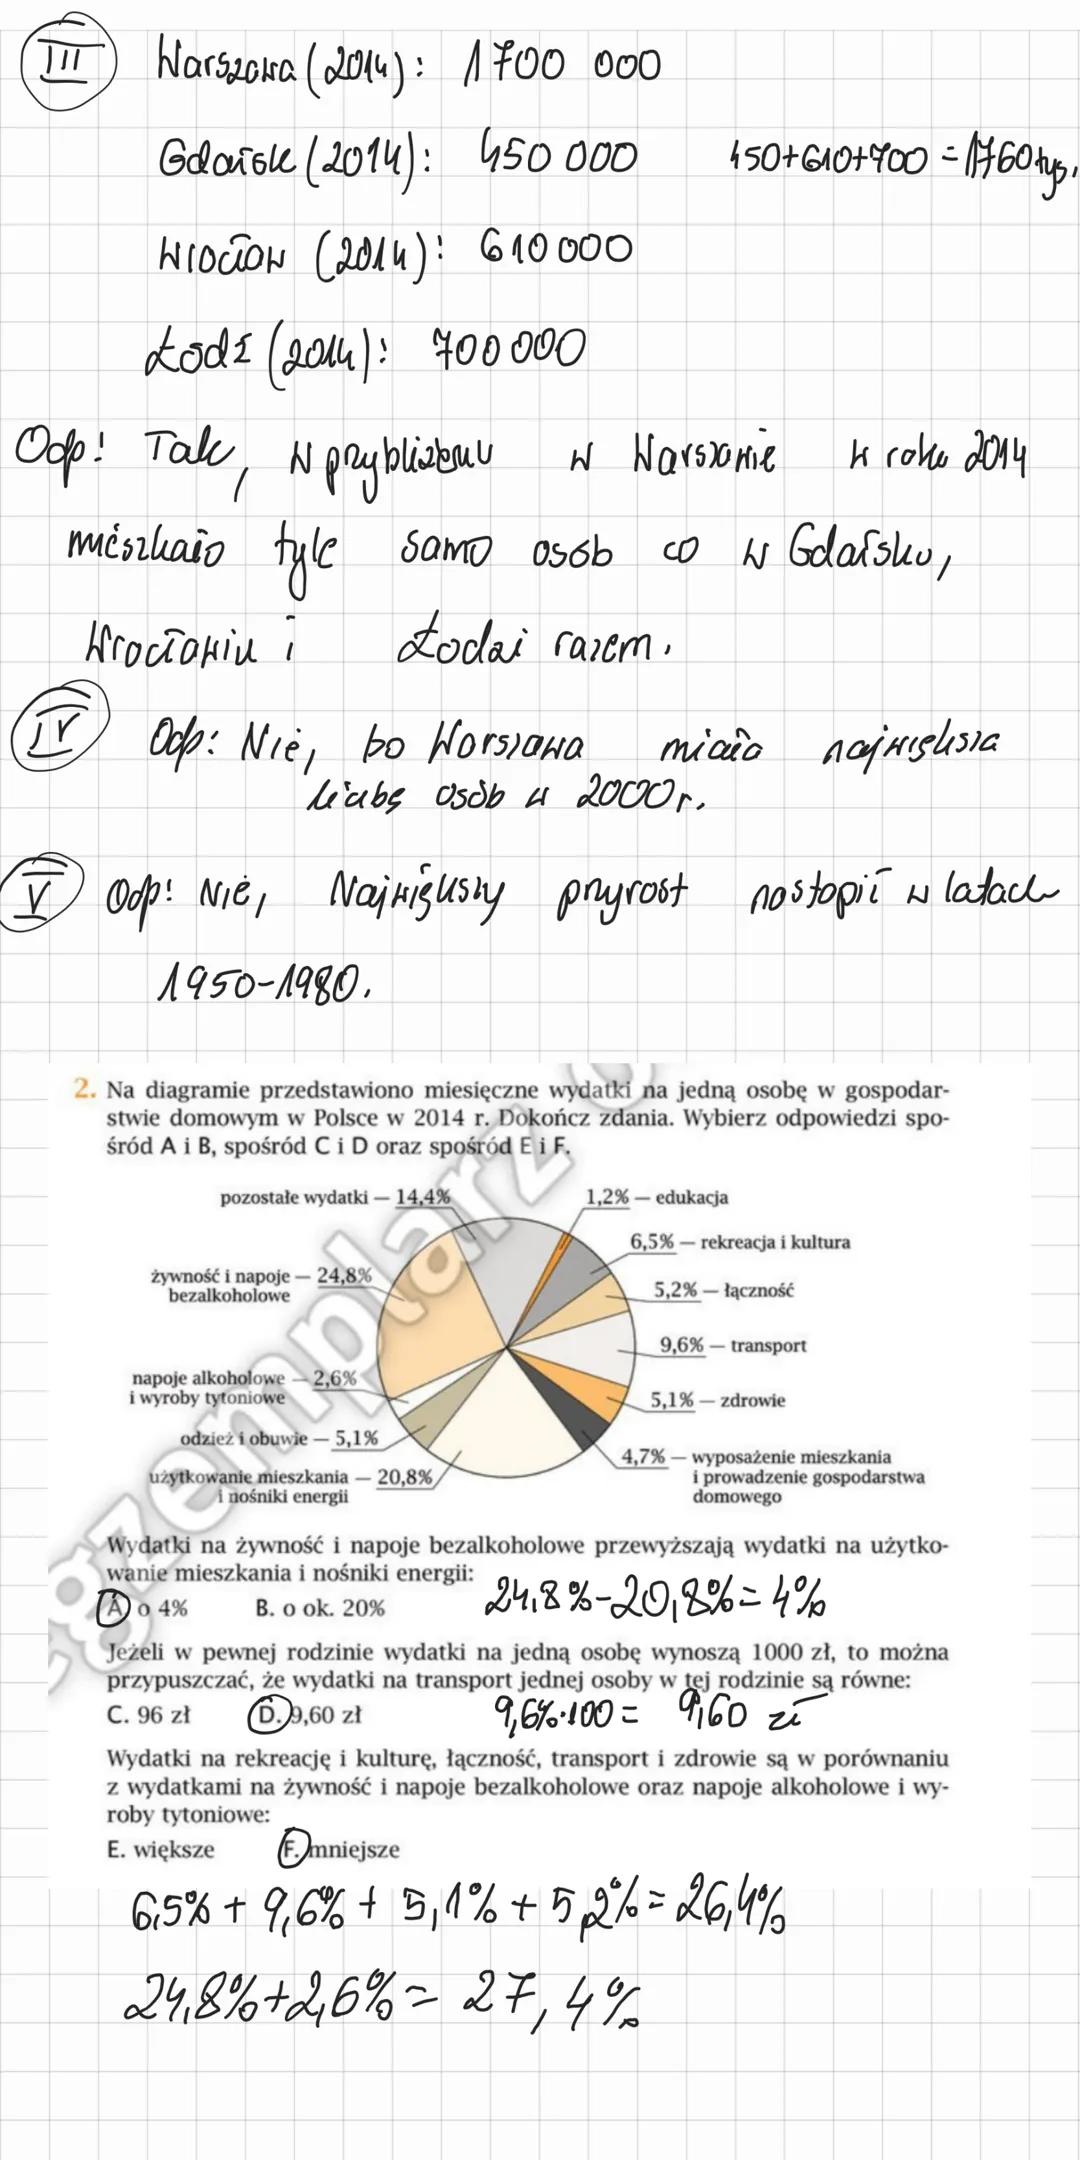 III Warszawa (2014): 1700 000
Gdańsk (2014): 450 000 450+610+700 = 1760 tys.
Wrocław (2014): 610 000
Łódź (2014): 700 000
Odp: Tak, w przybliżeniu w Warszawie w roku 2014
mieszkało tyle samo osób co w Gdańsku,
Wrocławiu i Łodzi razem.
IV Odp: Nie, bo Warszawa miała największa
liczbę osób w 2000r.
V Odp: Nie, Największy przyrost nastąpił w latach
1950-1980.
2. Na diagramie przedstawiono miesięczne wydatki na jedną osobę w gospodar-
stwie domowym w Polsce w 2014 r. Dokończ zdania. Wybierz odpowiedzi spo-
śród A i B, spośród C i D oraz spośród E i F.
pozostałe wydatki — 14,4%
1,2% — edukacja
6,5% — rekreacja i kultura
żywność i napoje — 24,8%
bezalkoholowe
5,2% — łączność
9,6% — transport
napoje alkoholowe — 2,6%
i wyroby tytoniowe
5,1% — zdrowie
odzież i obuwie — 5,1%
4,7% — wyposażenie mieszkania
i prowadzenie gospodarstwa
domowego
użytkowanie mieszkania — 20,8%
i nośniki energii
egzemplarz o
Wydatki na żywność i napoje bezalkoholowe przewyższają wydatki na użytko-
wanie mieszkania i nośniki energii:
24,8%-20,8%= 4%
A o 4% B. o ok. 20%
Jeżeli w pewnej rodzinie wydatki na jedną osobę wynoszą 1000 zł, to można
przypuszczać, że wydatki na transport jednej osoby w tej rodzinie są równe:
C. 96 zł D. 9,60 zł 9,6%·100 = 9,60 zł
Wydatki na rekreację i kulturę, łączność, transport i zdrowie są w porównaniu
z wydatkami na żywność i napoje bezalkoholowe oraz napoje alkoholowe i wy-
roby tytoniowe:
E. większe F. mniejsze
6,5% + 9,6% + 5,1% + 5,2% = 26,4%
24,8%+2,6% = 27,4%